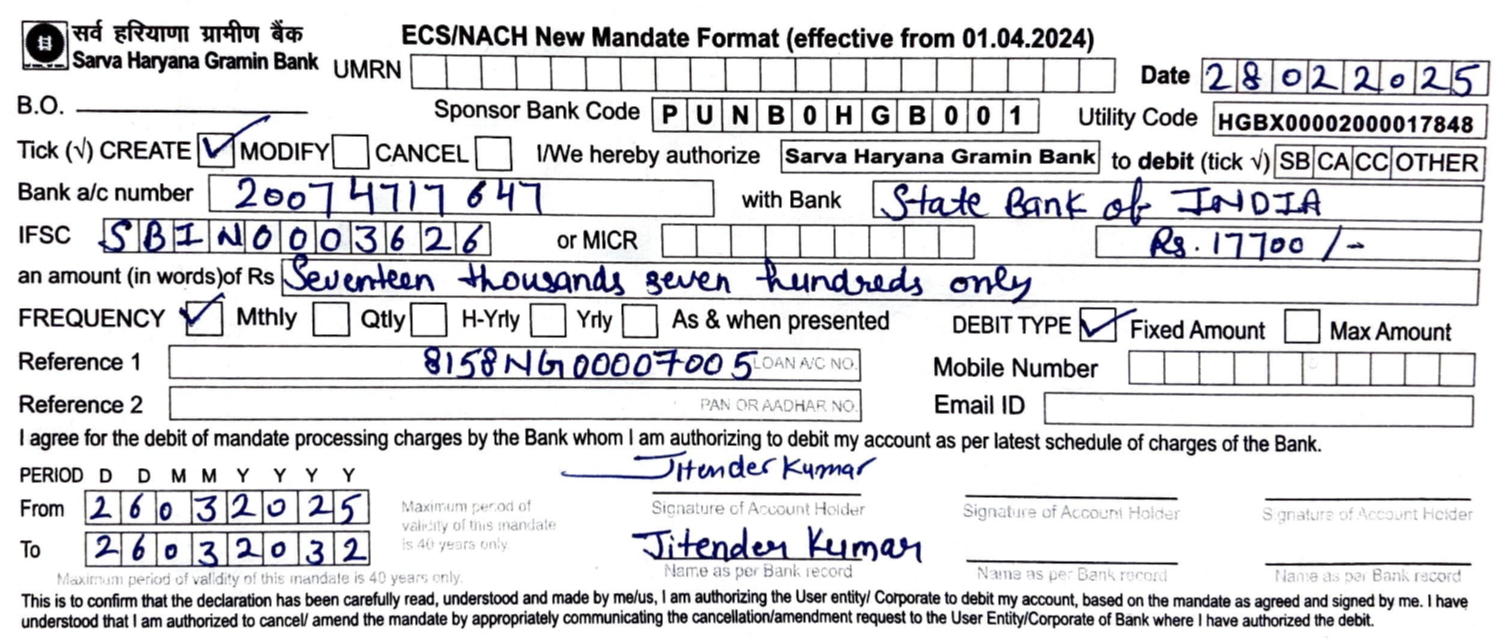 सर्व हरियाणा ग्रामीण बैंक
Sarva Haryana Gramin Bank
ECS/NACH New Mandate Format (effective from 01.04.2024)
UMRN Date 28022025
B.O. Sponsor Bank Code PUNB0HGB001 Utility Code HGBX00002000017848
Tick (√) CREATE ✓ MODIFY CANCEL I/We hereby authorize Sarva Haryana Gramin Bank to debit (tick √) SB CA CC OTHER
Bank a/c number 20074717647 with Bank State Bank of INDIA
IFSC SBIN0003626 or MICR Rs. 17700/-
an amount (in words)of Rs Seventeen thousands seven hundreds only
FREQUENCY ✓ Mthly Qtly H-Yrly Yrly As & when presented DEBIT TYPE ✓ Fixed Amount Max Amount
Reference 1 8158NG00007005 LOAN A/C NO. Mobile Number
Reference 2 PAN OR AADHAR NO. Email ID
I agree for the debit of mandate processing charges by the Bank whom I am authorizing to debit my account as per latest schedule of charges of the Bank.
PERIOD D D M M Y Y Y Y Jitender Kumar
From 26032025 Maximum period of validity of this mandate is 40 years only. Signature of Account Holder Signature of Account Holder Signature of Account Holder
To 26032032 Jitender Kumar
Maximum period of validity of this mandate is 40 years only. Name as per Bank record Name as per Bank record Name as per Bank record
This is to confirm that the declaration has been carefully read, understood and made by me/us, I am authorizing the User entity/ Corporate to debit my account, based on the mandate as agreed and signed by me. I have
understood that I am authorized to cancel/ amend the mandate by appropriately communicating the cancellation/amendment request to the User Entity/Corporate of Bank where I have authorized the debit.